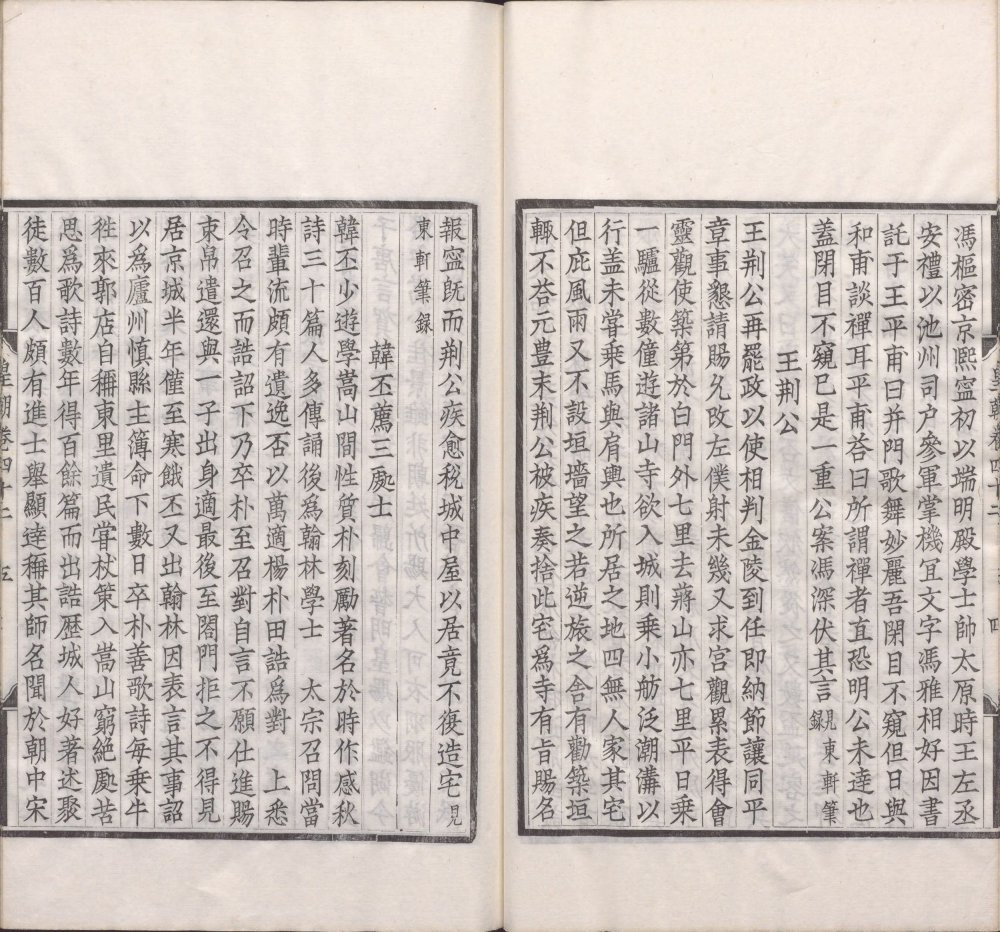 馮樞密京熙寧初以端明殿學士帥太原時王左丞
安禮以池州司户參軍掌機冝文字馮雅相好因書
託于王平甫曰并門歌舞妙麗吾閉目不窺但日與
和甫談禪耳平甫荅曰所謂禪者直恐明公未逹也
蓋閉目不窺已是一重公案馮深伏其言見東軒筆錄
王荆公
王荆公再罷政以使相判金陵到任即納節讓同平
章事懇請賜允改左僕射未幾又求宮觀累表得會
靈觀使築第於白門外七里去蔣山亦七里平日乗
一驢從數僮遊諸山寺欲入城則乗小舫泛潮溝以
行盖未甞乗馬與肩輿也所居之地四無人家其宅
但庇風雨又不設垣墻望之若逆旅之舍有勸築垣
輒不荅元豊末荆公被疾奏捨此宅爲寺有旨賜名
報寍旣而荆公疾愈稅城中屋以居竟不復造宅見
東軒筆錄
韓丕薦三處士
韓丕少遊學嵩山間性質朴刻勵著名於時作感秋
詩三十篇人多傳誦後爲翰林學士 太宗召問當
時輩流頗有遺逸否以萬適楊朴田誥爲對 上悉
令召之而誥詔下乃卒朴至召對自言不願仕進賜
束帛遣還與一子出身適最後至閤門拒之不得見
居京城半年僅至寒餓丕又出翰林因表言其事詔
以爲廬州慎縣主簿命下數日卒朴善歌詩每乗牛
徃來郭店自稱東里遺民甞杖策入嵩山窮絶處苦
思爲歌詩數年得百餘篇而出誥歷城人好著述聚
徒數百人頗有進士舉顯逹稱其師名聞於朝中宋
皇朝卷四十二 五